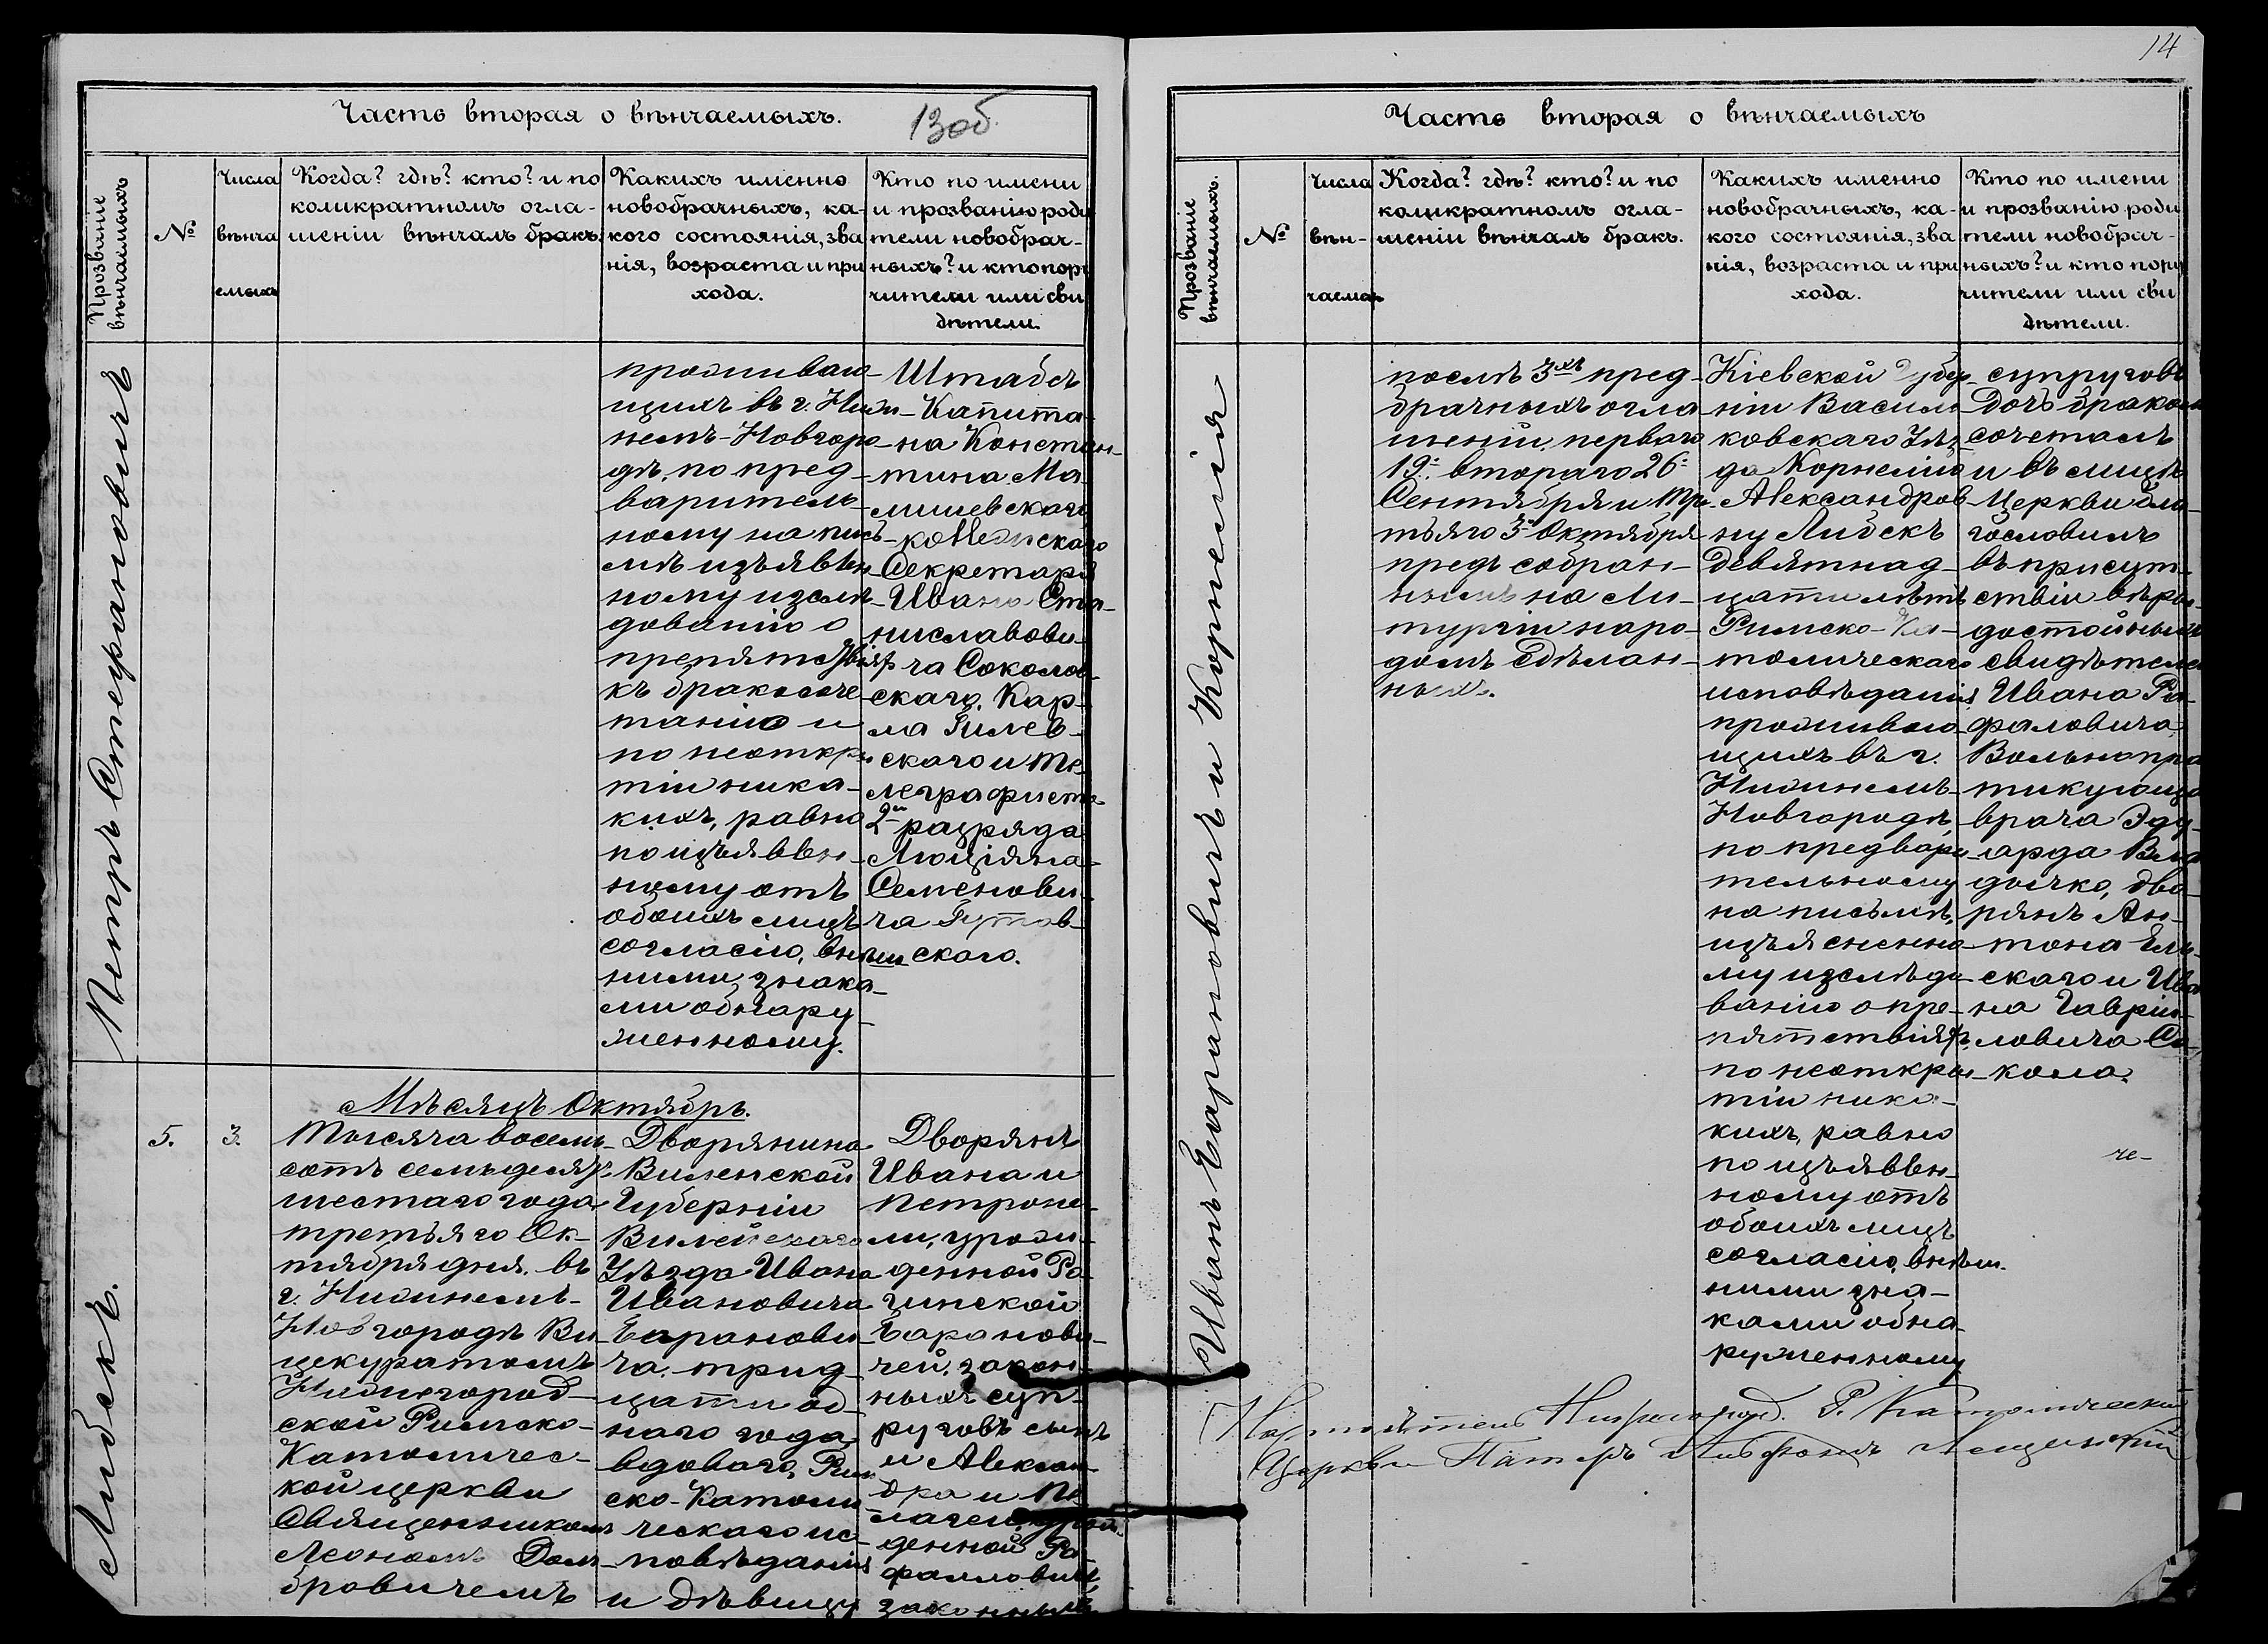 Часть вторая о вѣнчаемыхъ.
13 об.
Прозваніе вѣнчаемыхъ
№
Числа
вѣнча
емыхъ
Когда? гдѣ? кто? и по
коликратномъ огла-
шеніи вѣнчалъ бракъ.
Какихъ именно
новобрачныхъ, ка-
кого состоянія, зва
нія, возраста и при
хода.
Кто по имени
и прозванію роди
тели новобрач-
ныхъ? и кто пору
чители или сви
дѣтели.
Петръ Стефановичъ
проживаю-
щихъ въ г. Ниж-
немъ-Новгоро-
дѣ, по пред-
варитель-
ному на пись-
мѣ изъявлен-
ному изслѣ-
дованію о
препятствіяхъ
къ бракосоче-
танію и
по неоткры-
тіи ника-
кихъ, равно
по изъявлен-
ному отъ
обоихъ лицъ
согласію, внѣш
ними знака-
ми обнару-
женному.
Штабсъ
Капита-
на Констан-
тина Ма-
лишевскаго,
Секретаря
Ивана Ста-
ниславови-
ча Соколов-
скаго, Кар-
ла Гилев-
скаго и те-
леграфиста
2го разряда
Люціяна
Семенови-
ча Гутов-
скаго.
Мѣсяцъ Октябрь.
Либскъ.
5.
3.
Тысяча восемь-
сотъ семьдесятъ
шестаго года
третьяго Ок-
тября дня. въ
г. Нижнемъ-
Новгородѣ Ви-
цекуратомъ
Нижегород-
ской Римско-
Католичес-
кой церкви
Священникомъ
Леономъ Дом-
бровичемъ
Дворянина
Виленской
Губерніи
Вилейскаго
Уѣзда Ивана
Ивановича
Баранови-
ча, трид-
цати од-
наго года,
вдоваго, Рим
ско-Католи-
ческаго ис-
повѣданія
и дѣвицу
Дворянъ
Ивана и
Петроне-
ли, урож-
денной Ро-
гинской
Баранови-
чей, закон-
ныхъ суп-
руговъ сынъ
и Алексан-
дра и
денной Ра-
фаловичъ,
законныхъ
14
Часть вторая о вѣнчаемыхъ
Прозваніе вѣнчаемыхъ.
№
Числа
вѣн-
чаемыхъ
Когда? гдѣ? кто? и по
коликратномъ огла-
шеніи вѣнчалъ бракъ.
Какихъ именно
новобрачныхъ, ка-
кого состоянія, зва
нія, возраста и при
хода.
Кто по имени
и прозванію роди
тели новобрач-
ныхъ? и кто пору
чители или сви
дѣтели.
Иванъ Барановичъ и Корнелія
послѣ 3хъ пред-
брачныхъ огла-
шеній, перваго
19. втораго 26.
Сентября и тре-
тьяго 3. Октября
предъ собран-
нымъ на Ли-
тургіи наро-
домъ сдѣлан-
ныхъ.
Кіевской Губер-
ніи Василь-
ковскаго Уѣз-
да Корнелію
Александров-
ну Либскъ
девятнад-
цати лѣтъ
Римско-Ка-
толическаго
исповѣданія,
проживаю-
щихъ въ г.
Нижнемъ-
Новгородѣ,
по предвари-
тельному
на письмѣ,
изъясненно-
му изслѣдо-
ванію о пре-
пятствіяхъ,
по неоткры-
тіи ника-
кихъ, равно
по изъявлен-
ному отъ
обоихъ лицъ
согласію, внѣш-
ними зна-
ками обна-
руженному
супруговъ
дочь бракомъ
сочеталъ
и въ лицѣ
Церкви бла-
гословилъ
въ присут-
ствіи вѣро-
достойныхъ
свидѣтелей
Ивана Ра-
фаловича,
Вольнопра-
ктикующаго
врача Эду-
арда Вла-
дычко, дво-
рянъ Ан-
тона
скаго и Ива-
на Гаврии-
ловича Со-
кола.
че-
Настоятель Нижегород. Р. Католической
Церкви Патеръ